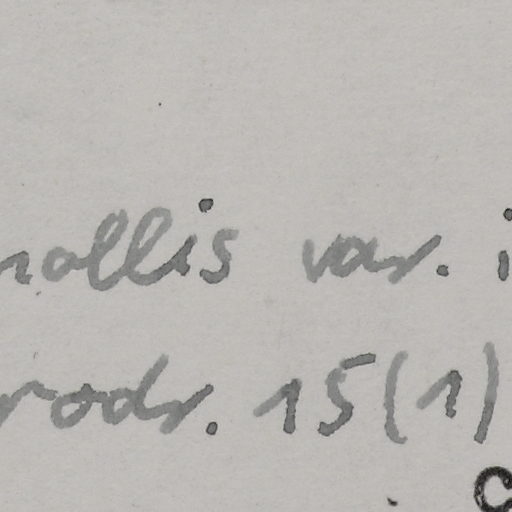 mollis var. i
rodr. 15(1)
C